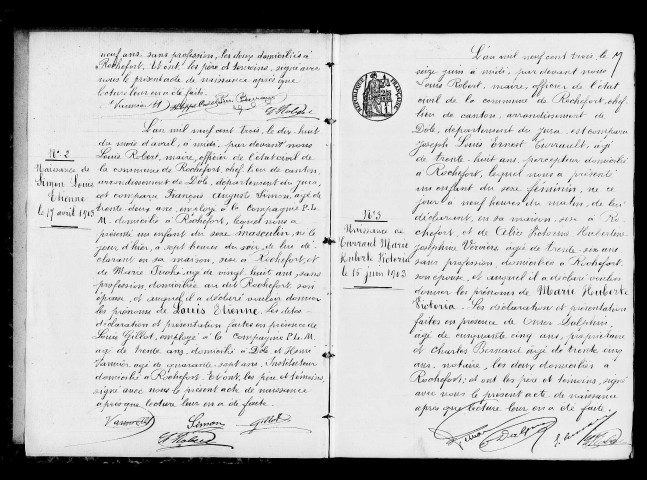 neuf ans, sans profession, les deux domiciliés à
Rochefort. Et ont, les père et témoins, signé avec
nous le présent acte de naissance après que
lecture leur en a été faite.
N° 2
Naissance de
Simon Louis
Etienne
le 17 avril 1903
L'an mil neuf cent trois, le dix huit
du mois d'avril, à midi, par devant nous
Louis Robert, maire, officier de l'état civil de
la commune de Rochefort, chef lieu de canton,
arrondissement de Dôle, département du Jura,
est comparu François Auguste Simon, âgé de
trente deux ans, employé à la Compagnie P.L.
M. domicilié à Rochefort, lequel nous a
présenté un enfant du sexe masculin, né le
jour d'hier, à sept heures du soir, de lui dé-
clarant en sa maison, sise à Rochefort, et
de Marie âgée de vingt huit ans, sans
profession domiciliée au dit Rochefort, son
épouse, et auquel il a déclaré vouloir donner
les prénoms de Louis Etienne. Les dites
déclaration et présentation faites en présence de
Louis Gillot, employé à la Compagnie P.L.M.
âgé de trente ans, domicilié à Dôle et Henri
Vannier, âgé de quarante sept ans, Instituteur
domicilié à Rochefort. Et ont, les père et témoins,
signé avec nous le présent acte de naissance
après que lecture leur en a été faite.
Simon Gillot
RÉPUBLIQUE FRANÇAISE
N° 3
Naissance de
Marie
Huberte Victoria
le 15 juin 1903
L'an mil neuf cent trois le
seize juin à midi, par devant nous
Louis Robert, maire, officier de l'état
civil de la commune de Rochefort, chef
lieu de canton, arrondissement de
Dôle, département du Jura, est comparu
Joseph Louis Ernest âgé
de trente huit ans, percepteur domicilié
à Rochefort, lequel nous a présenté
un enfant du sexe féminin, né ce
jour à neuf heures du matin, de lui
déclarant, en sa maison sise à Ro-
chefort, et de Victorine Hubertine
Josephine âgée de trente six ans
sans profession domiciliée à Rochefort
son épouse, et auquel il a déclaré vouloir
donner les prénoms de Marie Huberte
Victoria. Les déclarations et présentation
faites en présence de
âgé de cinquante cinq ans, propriétaire
et Charles Bernard âgé de trente cinq
ans, notaire, les deux domiciliés à
Rochefort; et ont les père et témoins, signé
avec nous le présent acte de naissance
après que lecture leur en a été faite.